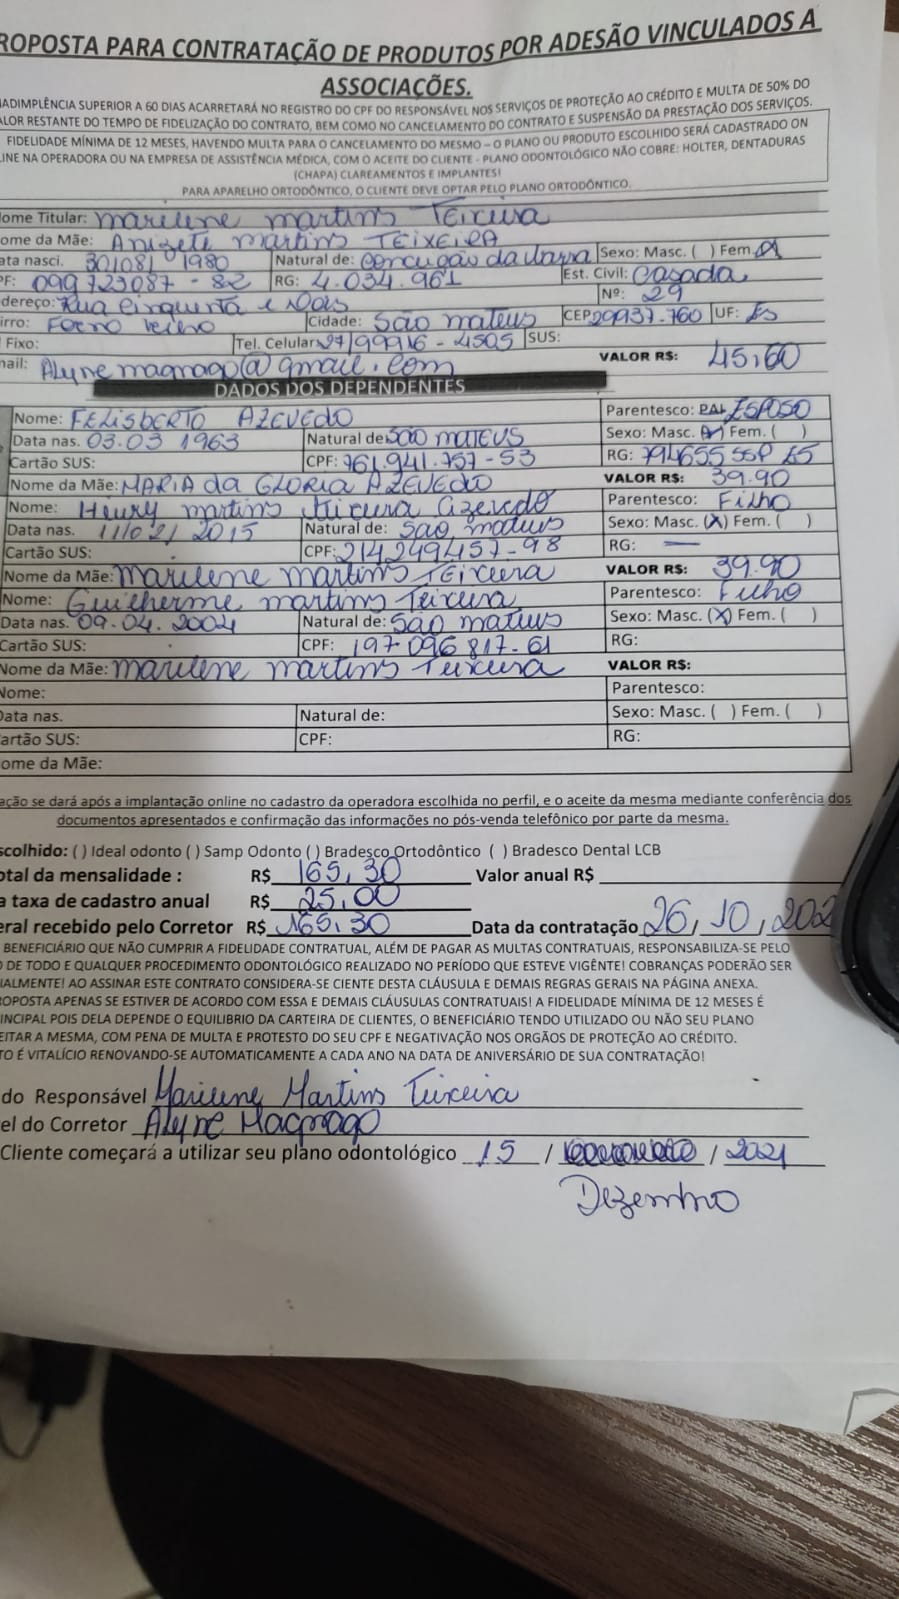 ROPOSTA PARA CONTRATAÇÃO DE PRODUTOS POR ADESÃO VINCULADOS A
ASSOCIAÇÕES.
NADIMPLÊNCIA SUPERIOR A 60 DIAS ACARRETARÁ NO REGISTRO DO CPF DO RESPONSÁVEL NOS SERVIÇOS DE PROTEÇÃO AO CRÉDITO E MULTA DE 50% DO
ALOR RESTANTE DO TEMPO DE FIDELIZAÇÃO DO CONTRATO, BEM COMO NO CANCELAMENTO DO CONTRATO E SUSPENSÃO DA PRESTAÇÃO DOS SERVIÇOS.
FIDELIDADE MÍNIMA DE 12 MESES, HAVENDO MULTA PARA O CANCELAMENTO DO MESMO – O PLANO OU PRODUTO ESCOLHIDO SERÁ CADASTRADO ON
LINE NA OPERADORA OU NA EMPRESA DE ASSISTÊNCIA MÉDICA, COM O ACEITE DO CLIENTE - PLANO ODONTOLÓGICO NÃO COBRE: HOLTER, DENTADURAS
(CHAPA) CLAREAMENTOS E IMPLANTES!
PARA APARELHO ORTODÔNTICO, O CLIENTE DEVE OPTAR PELO PLANO ORTODÔNTICO.
ome Titular: marilene martins Teixeira
ome da Mãe: Anizete martins TEIXEIRA
ata nasci. 1980 Natural de: Conceição da Barra Sexo: Masc. ( ) Fem.
PF: 099723087-82 RG: 4.034.961 Est. Civil: Casada
dereço: Rua Cinquenta e Dois Nº: 29
irro: Cidade: São mateus CEP 29937-760 UF: ES
Fixo: Tel. Celular 27/99916-4505 SUS:
nail: Alynemagnago@gmail.com VALOR R$: 45,60
DADOS DOS DEPENDENTES
Nome: FELISBERTO AZEVEDO Parentesco: ESPOSO
Data nas. 03.03 1963 Natural de SÃO MATEUS Sexo: Masc. (X) Fem. ( )
Cartão SUS: CPF: 761.941.757-53 RG: 794655 SSP ES
Nome da Mãe: MARIA da GLORIA AZEVEDO VALOR R$: 39.90
Nome: Henry martins Teixeira azevedo Parentesco: Filho
Data nas. 11/02/2015 Natural de: São mateus Sexo: Masc. (X) Fem. ( )
Cartão SUS: CPF: 214249457-98 RG: —
Nome da Mãe: Marilene martins TEIXEIRA VALOR R$: 39.90
Nome: Guilherme martins Teixeira Parentesco: Filho
Data nas. 09.04.2004 Natural de: São mateus Sexo: Masc. (X) Fem. ( )
Cartão SUS: CPF: 197096817-61 RG:
Nome da Mãe: marilene martins Teixeira VALOR R$:
Nome: Parentesco:
Data nas. Natural de: Sexo: Masc. ( ) Fem. ( )
artão SUS: CPF: RG:
ome da Mãe:
ação se dará após a implantação online no cadastro da operadora escolhida no perfil, e o aceite da mesma mediante conferência dos
documentos apresentados e confirmação das informações no pós-venda telefônico por parte da mesma.
scolhido: ( ) Ideal odonto ( ) Samp Odonto ( ) Bradesco Ortodôntico ( ) Bradesco Dental LCB
otal da mensalidade : R$ 165,30 Valor anual R$
a taxa de cadastro anual R$ 25,00
eral recebido pelo Corretor R$ 165,30 Data da contratação 26/10/202
BENEFICIÁRIO QUE NÃO CUMPRIR A FIDELIDADE CONTRATUAL, ALÉM DE PAGAR AS MULTAS CONTRATUAIS, RESPONSABILIZA-SE PELO
O DE TODO E QUALQUER PROCEDIMENTO ODONTOLÓGICO REALIZADO NO PERÍODO QUE ESTEVE VIGÊNTE! COBRANÇAS PODERÃO SER
IALMENTE! AO ASSINAR ESTE CONTRATO CONSIDERA-SE CIENTE DESTA CLÁUSULA E DEMAIS REGRAS GERAIS NA PÁGINA ANEXA.
ROPOSTA APENAS SE ESTIVER DE ACORDO COM ESSA E DEMAIS CLÁUSULAS CONTRATUAIS! A FIDELIDADE MÍNIMA DE 12 MESES É
INCIPAL POIS DELA DEPENDE O EQUILIBRIO DA CARTEIRA DE CLIENTES, O BENEFICIÁRIO TENDO UTILIZADO OU NÃO SEU PLANO
EITAR A MESMA, COM PENA DE MULTA E PROTESTO DO SEU CPF E NEGATIVAÇÃO NOS ORGÃOS DE PROTEÇÃO AO CRÉDITO.
TO É VITALÍCIO RENOVANDO-SE AUTOMATICAMENTE A CADA ANO NA DATA DE ANIVERSÁRIO DE SUA CONTRATAÇÃO!
do Responsável Marilene Martins Teixeira
el do Corretor Alyne Magnago
Cliente começará a utilizar seu plano odontológico 15 / / 2021
Dezembro